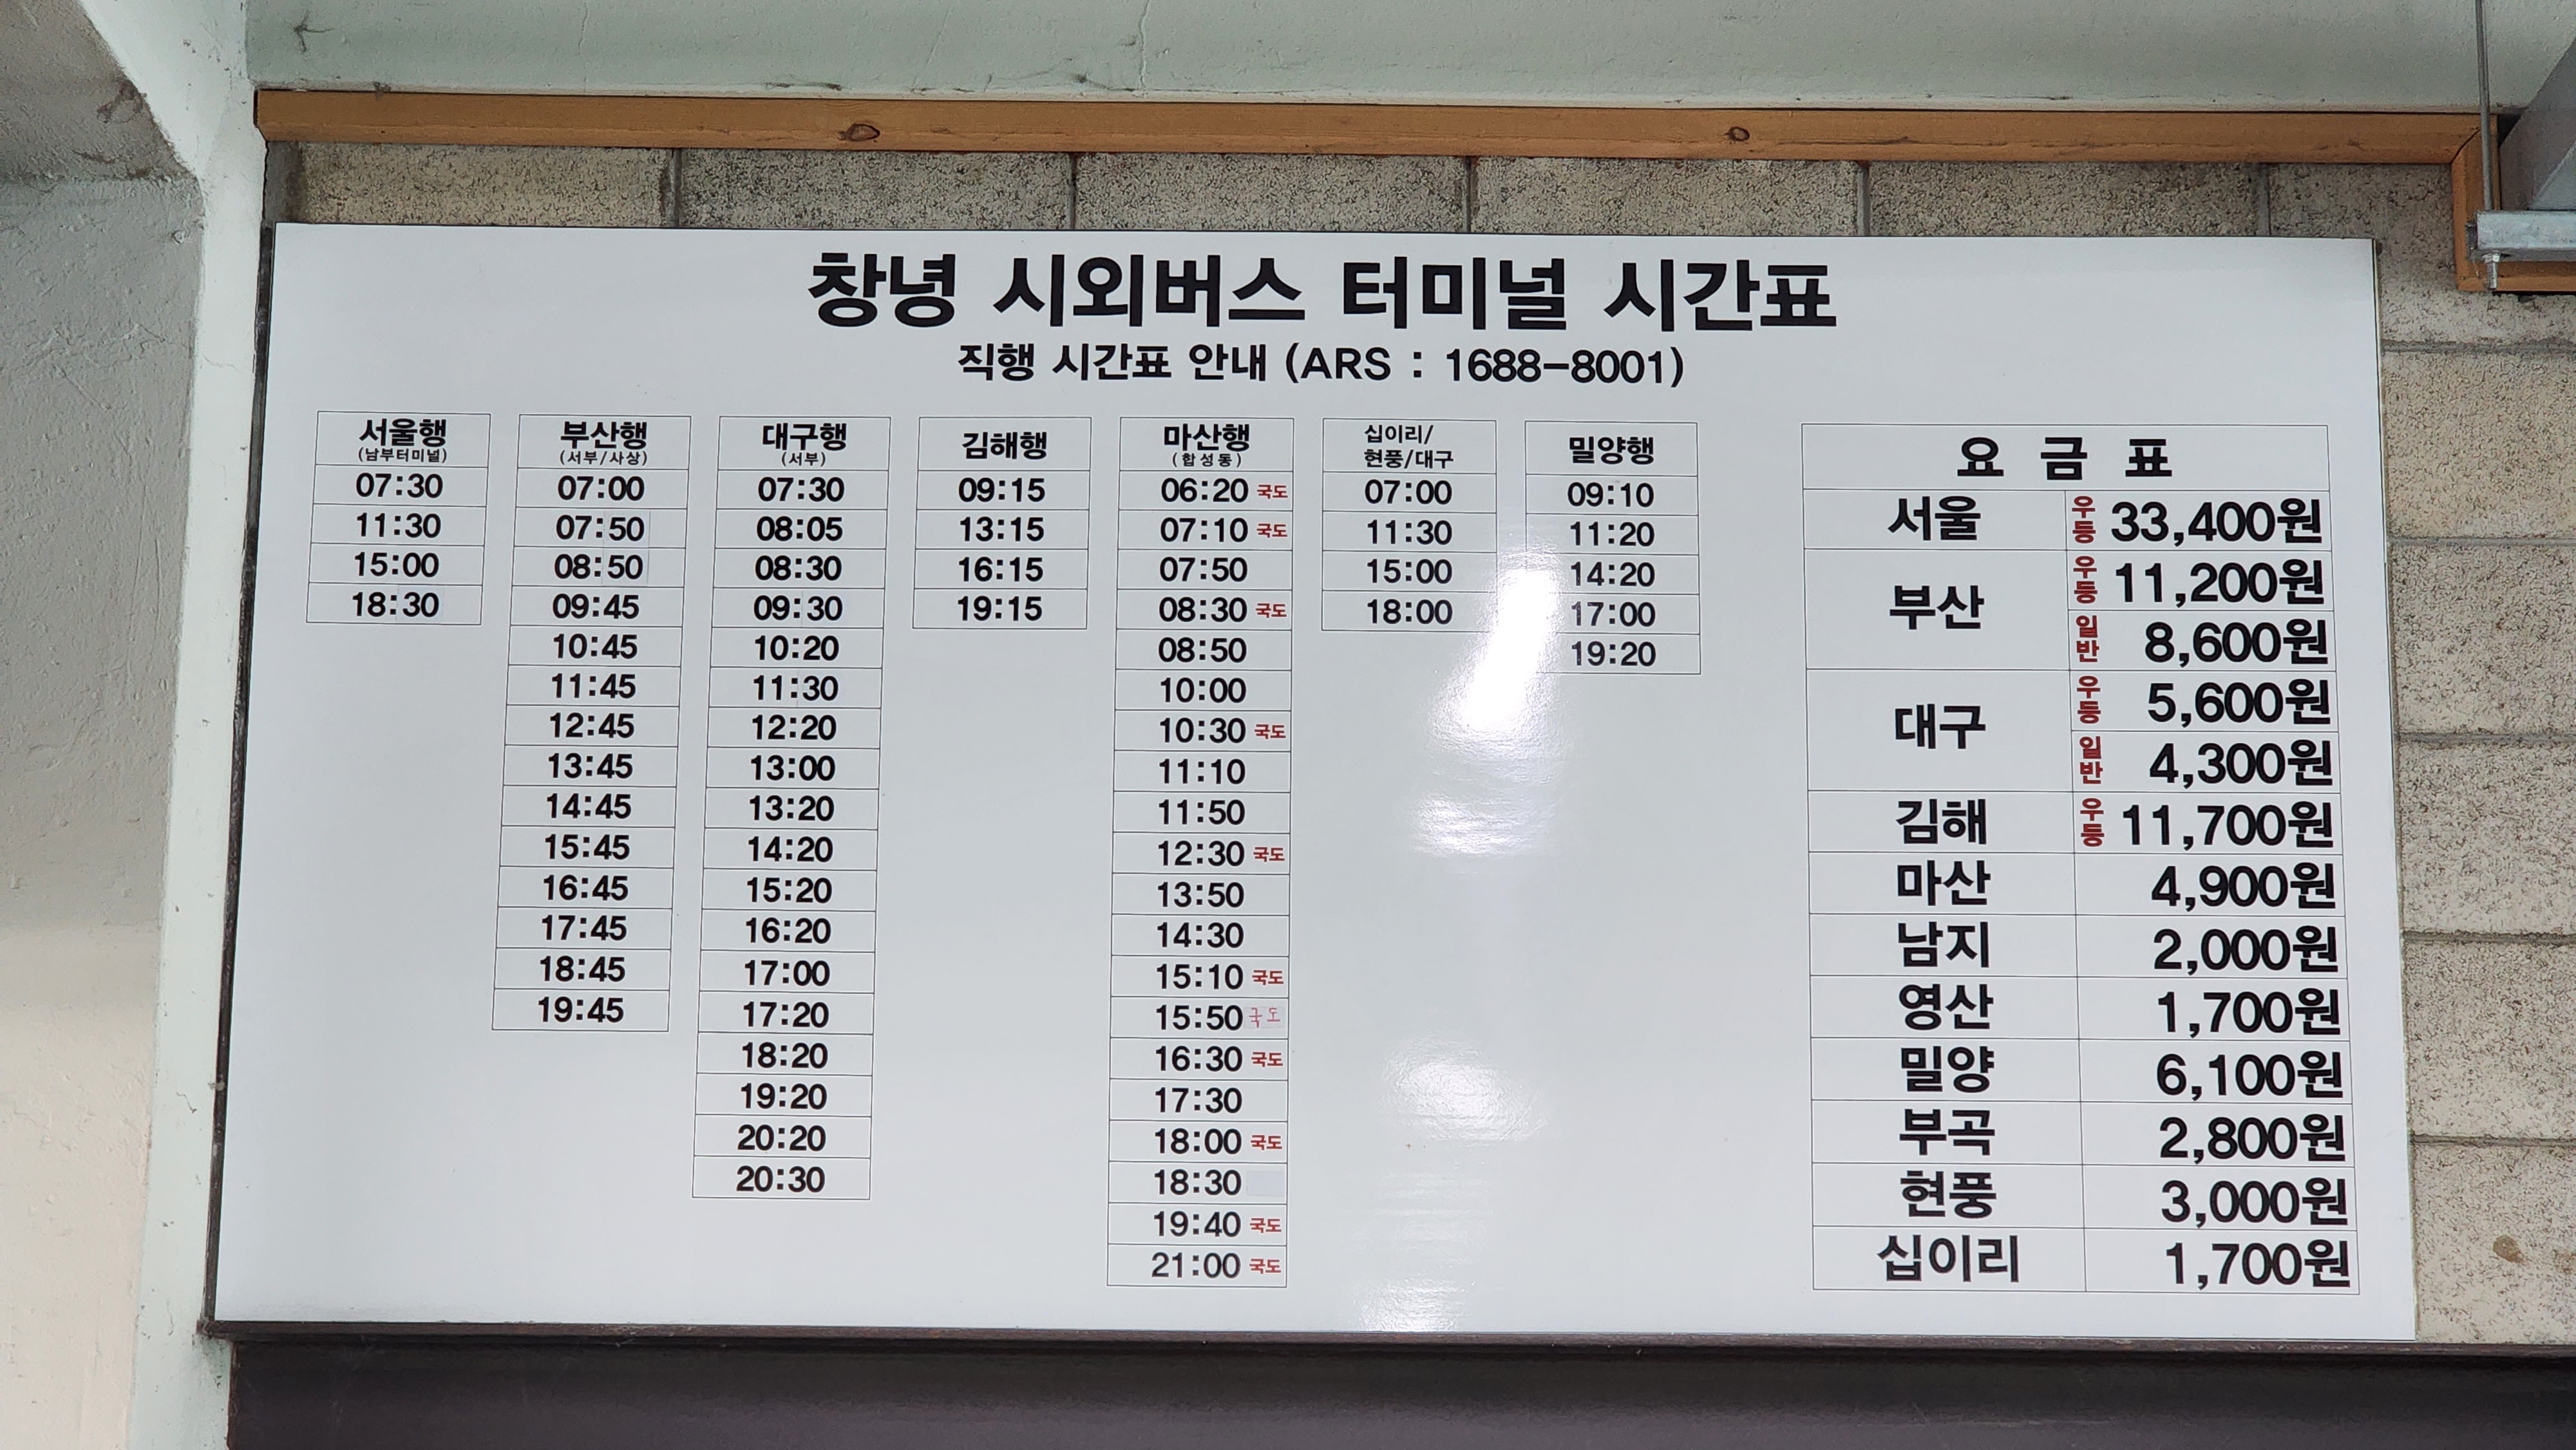 창녕 시외버스 터미널 시간표
직행 시간표 안내 (ARS : 1688-8001)
서울행
(남부터미널)
07:30
11:30
15:00
18:30
부산행
(서부/사상)
07:00
07:50
08:50
09:45
10:45
11:45
12:45
13:45
14:45
15:45
16:45
17:45
18:45
19:45
대구행
(서부)
07:30
08:05
08:30
09:30
10:20
11:30
12:20
13:00
13:20
14:20
15:20
16:20
17:00
17:20
18:20
19:20
20:20
20:30
김해행
09:15
13:15
16:15
19:15
마산행
(합성동)
06:20 국도
07:10 국도
07:50
08:30 국도
08:50
10:00
10:30 국도
11:10
11:50
12:30 국도
13:50
14:30
15:10 국도
15:50 국도
16:30 국도
17:30
18:00 국도
18:30
19:40 국도
21:00 국도
십이리/
현풍/대구
07:00
11:30
15:00
18:00
밀양행
09:10
11:20
14:20
17:00
19:20
요 금 표
서울 우등 33,400원
부산 우등 11,200원
일반 8,600원
대구 우등 5,600원
일반 4,300원
김해 우등 11,700원
마산 4,900원
남지 2,000원
영산 1,700원
밀양 6,100원
부곡 2,800원
현풍 3,000원
십이리 1,700원